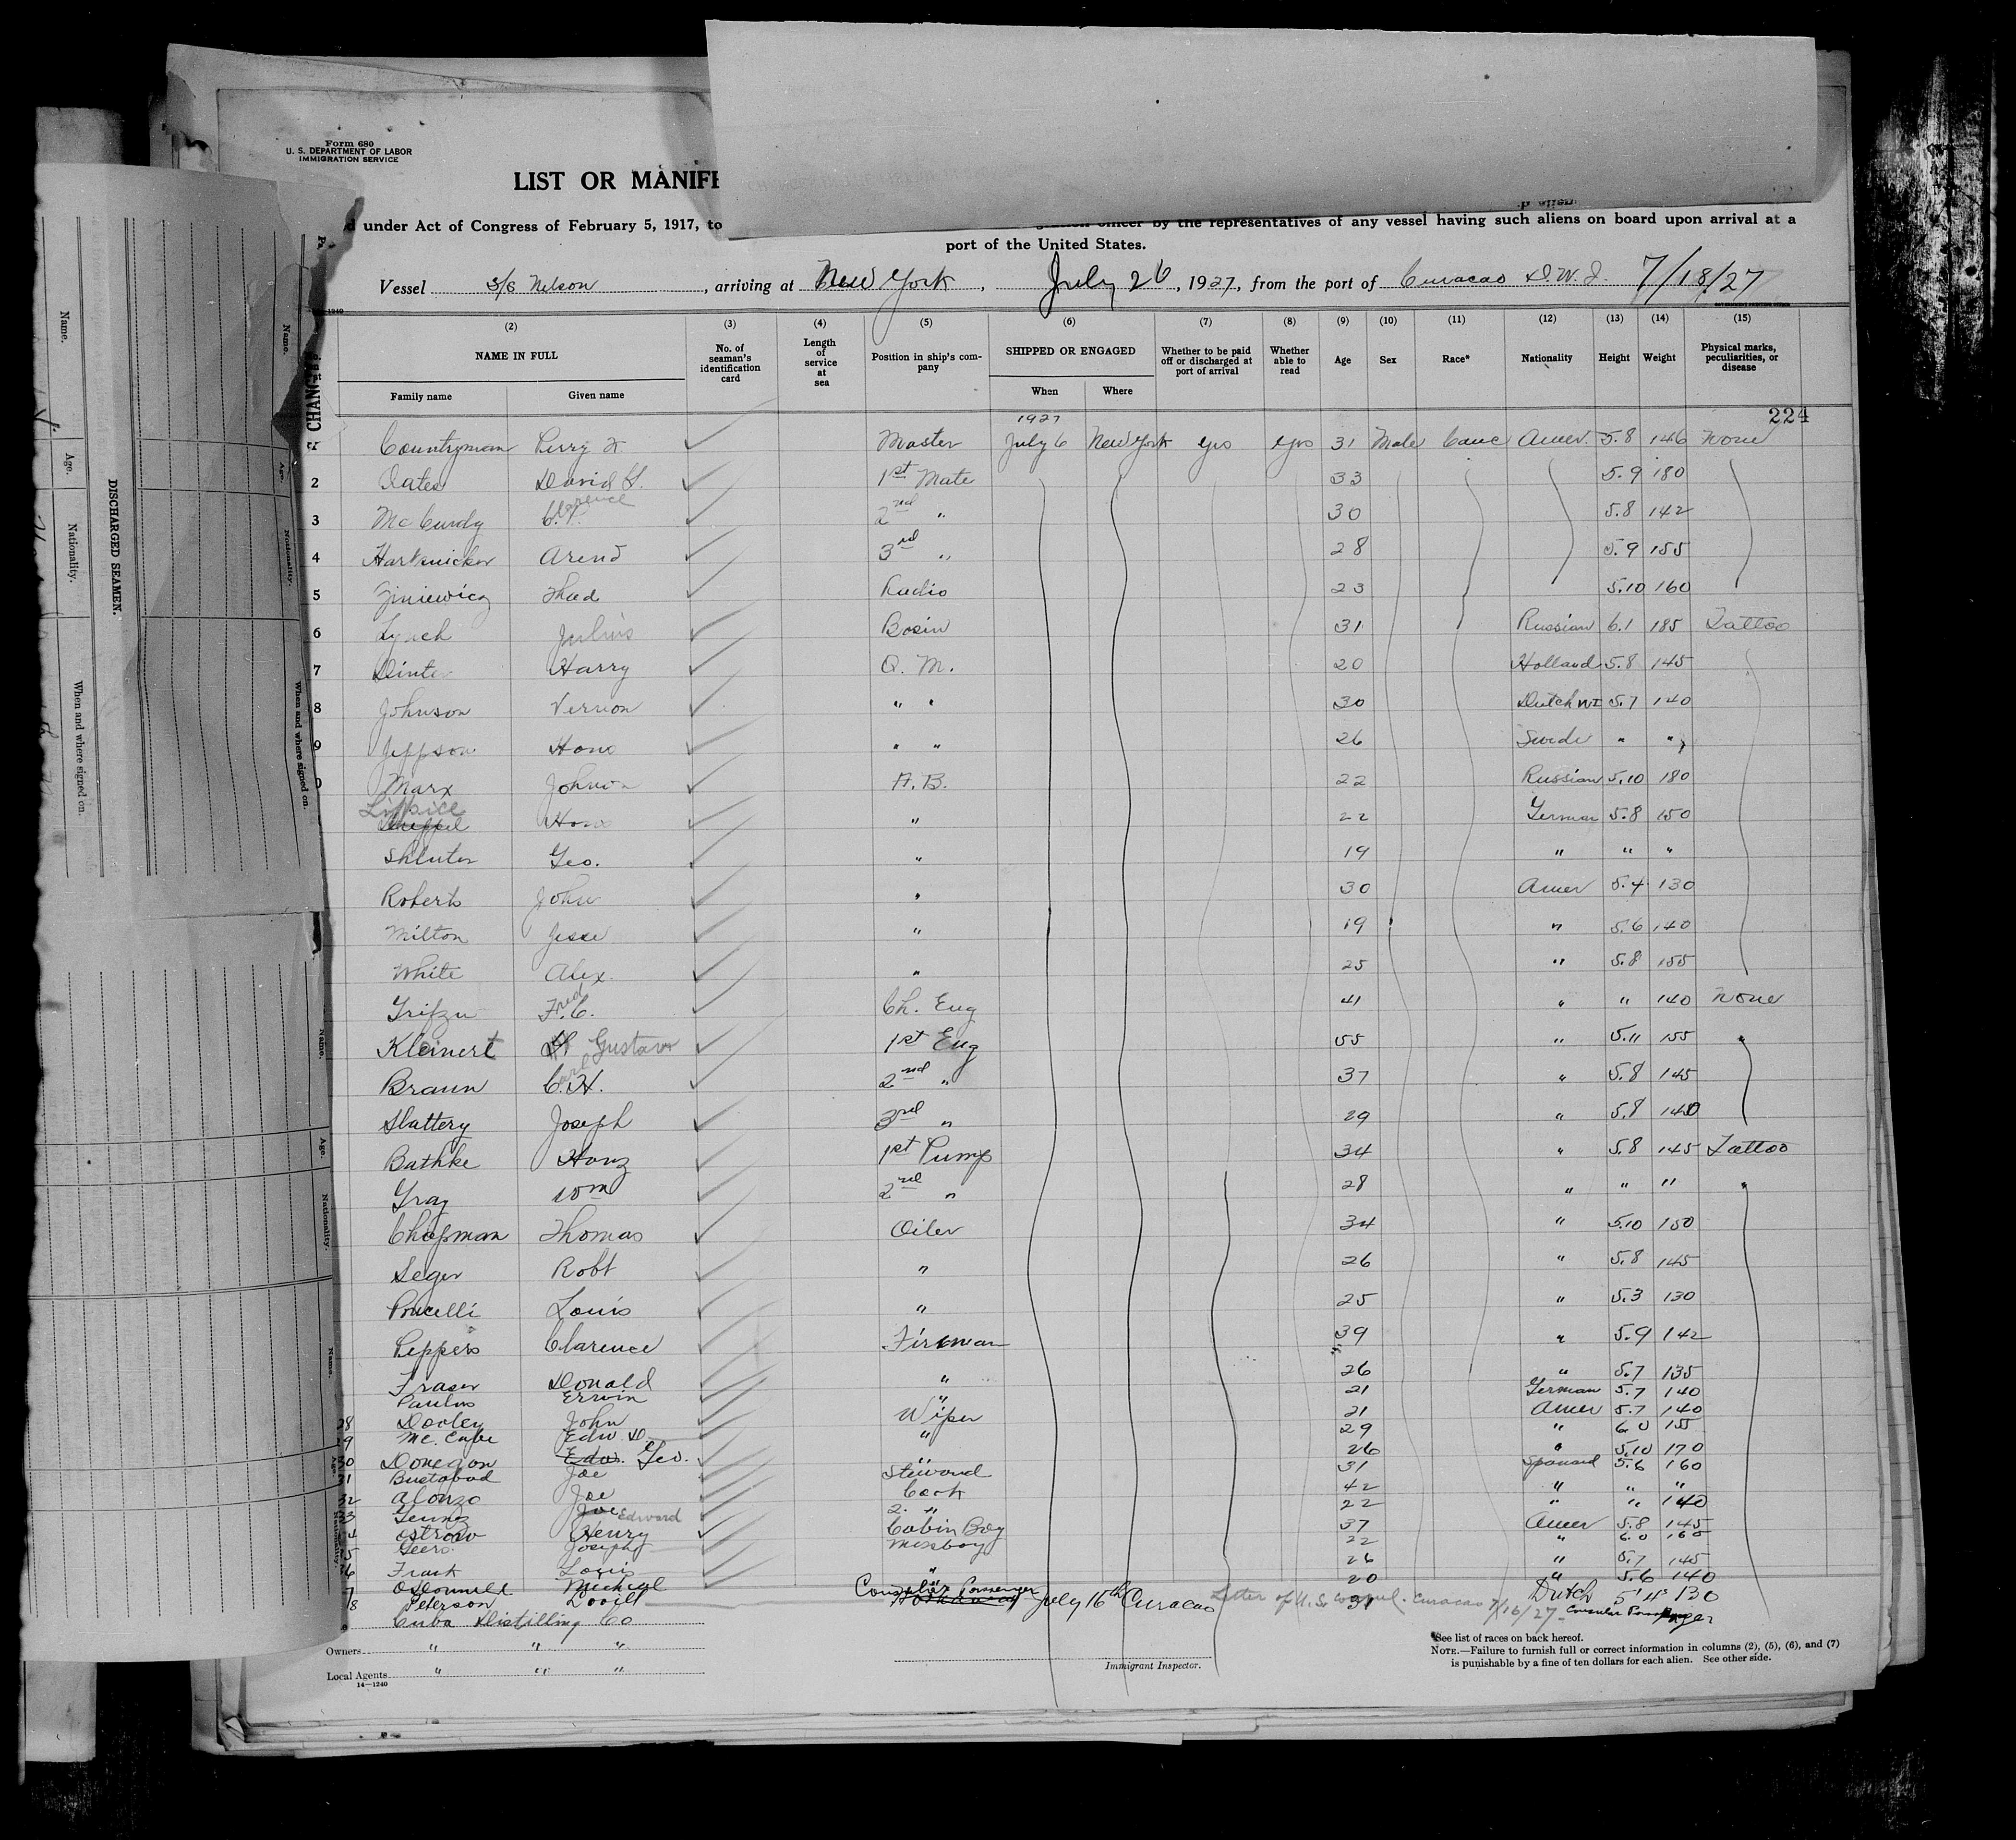 Form 680
U. S. DEPARTMENT OF LABOR
IMMIGRATION SERVICE
LIST OR MANIFE
d under Act of Congress of February 5, 1917, to officer by the representatives of any vessel having such aliens on board upon arrival at a
port of the United States.
Vessel S/S Nelson, arriving at New York, July 26, 1927, from the port of Curacao D.W.I. 7/18/27
(2) (3) (4) (5) (6) (7) (8) (9) (10) (11) (12) (13) (14) (15)
NAME IN FULL No. of seaman's identification card Length of service at sea Position in ship's company SHIPPED OR ENGAGED Whether to be paid off or discharged at port of arrival Whether able to read Age Sex Race* Nationality Height Weight Physical marks, peculiarities, or disease
Family name Given name When Where
1927 224
Countryman Perry Master July 6 New York yes yes 31 Male Cauc Amer. 5.8 146 None
2 Oates David 1st Mate 33 5.9 180
3 McCurdy Clarence 2nd " 30 5.8 142
4 Arend 3rd " 28 5.9 155
5 Thad Radio 23 5.10 160
6 Lynch Julius Bosin 31 Russian 6.1 185 Tattoo
7 Harry Q. M. 20 Holland 5.8 145
8 Johnson Vernon " " 30 Dutch WI 5.7 140
9 Jeppson Hans " " 26 Swede " "
Marx A. B. 22 Russian 5.10 180
Hans " 22 German 5.8 150
Geo. " 19 " " "
Roberts John " 30 Amer 5.4 130
Milton Jesse " 19 " 5.6 140
White Alex. " 25 " 5.8 155
Fred C. Ch. Eng 41 " " 140 None
Kleinert Gustav 1st Eng 55 " 5.11 155 "
Braun Carl C.H. 2nd " 37 " 5.8 145
Slattery Joseph 3rd " 29 " 5.8 140
Bathke Hanz 1st Pump 34 " 5.8 145 Tattoo
Gray Wm 2nd " 28 " " " "
Chapman Thomas Oiler 34 " 5.10 150
Seger Robt " 26 " 5.8 145
Louis " 25 " 5.3 130
Peppers Clarence Fireman 39 " 5.9 142
Fraser Donald " 26 " 5.7 135
Paulus Erwin " 21 German 5.7 140
28 Dooley John Wiper 21 Amer 5.7 140
29 Mc. Cabe Edw. D. " 29 " 6.0 155
30 Donegan Edw. Geo. " 26 " 5.10 170
31 Bustabad Joe Steward 31 Spaniard 5.6 160
32 Alonzo Joe Cook 42 " " "
33 Joe Edward 2. " 22 " " 140
34 Ostrow Henry Cabin Boy 37 Amer 5.8 145
35 Geers Joseph Messboy 22 " 6.0 160
36 Louis " 26 " 5.7 145
37 O'Donnell Michael " 20 " 5.6 140
38 Peterson Consular Passenger July 16th Curacao Letter of U.S. Consul. Curacao 7/16/27 31 Dutch 5'4" 130 Consular Passenger
Cuba Distilling Co
Owners " " "
Local Agents " " "
14—1240
Immigrant Inspector.
*See list of races on back hereof.
NOTE.—Failure to furnish full or correct information in columns (2), (5), (6), and (7)
is punishable by a fine of ten dollars for each alien. See other side.
DISCHARGED SEAMEN.
Name. Age. Nationality. When and where signed on.
Name. Age. Nationality. When and where signed on.
Name. Age. Nationality.
Name. Age. Nationality.
CHANG